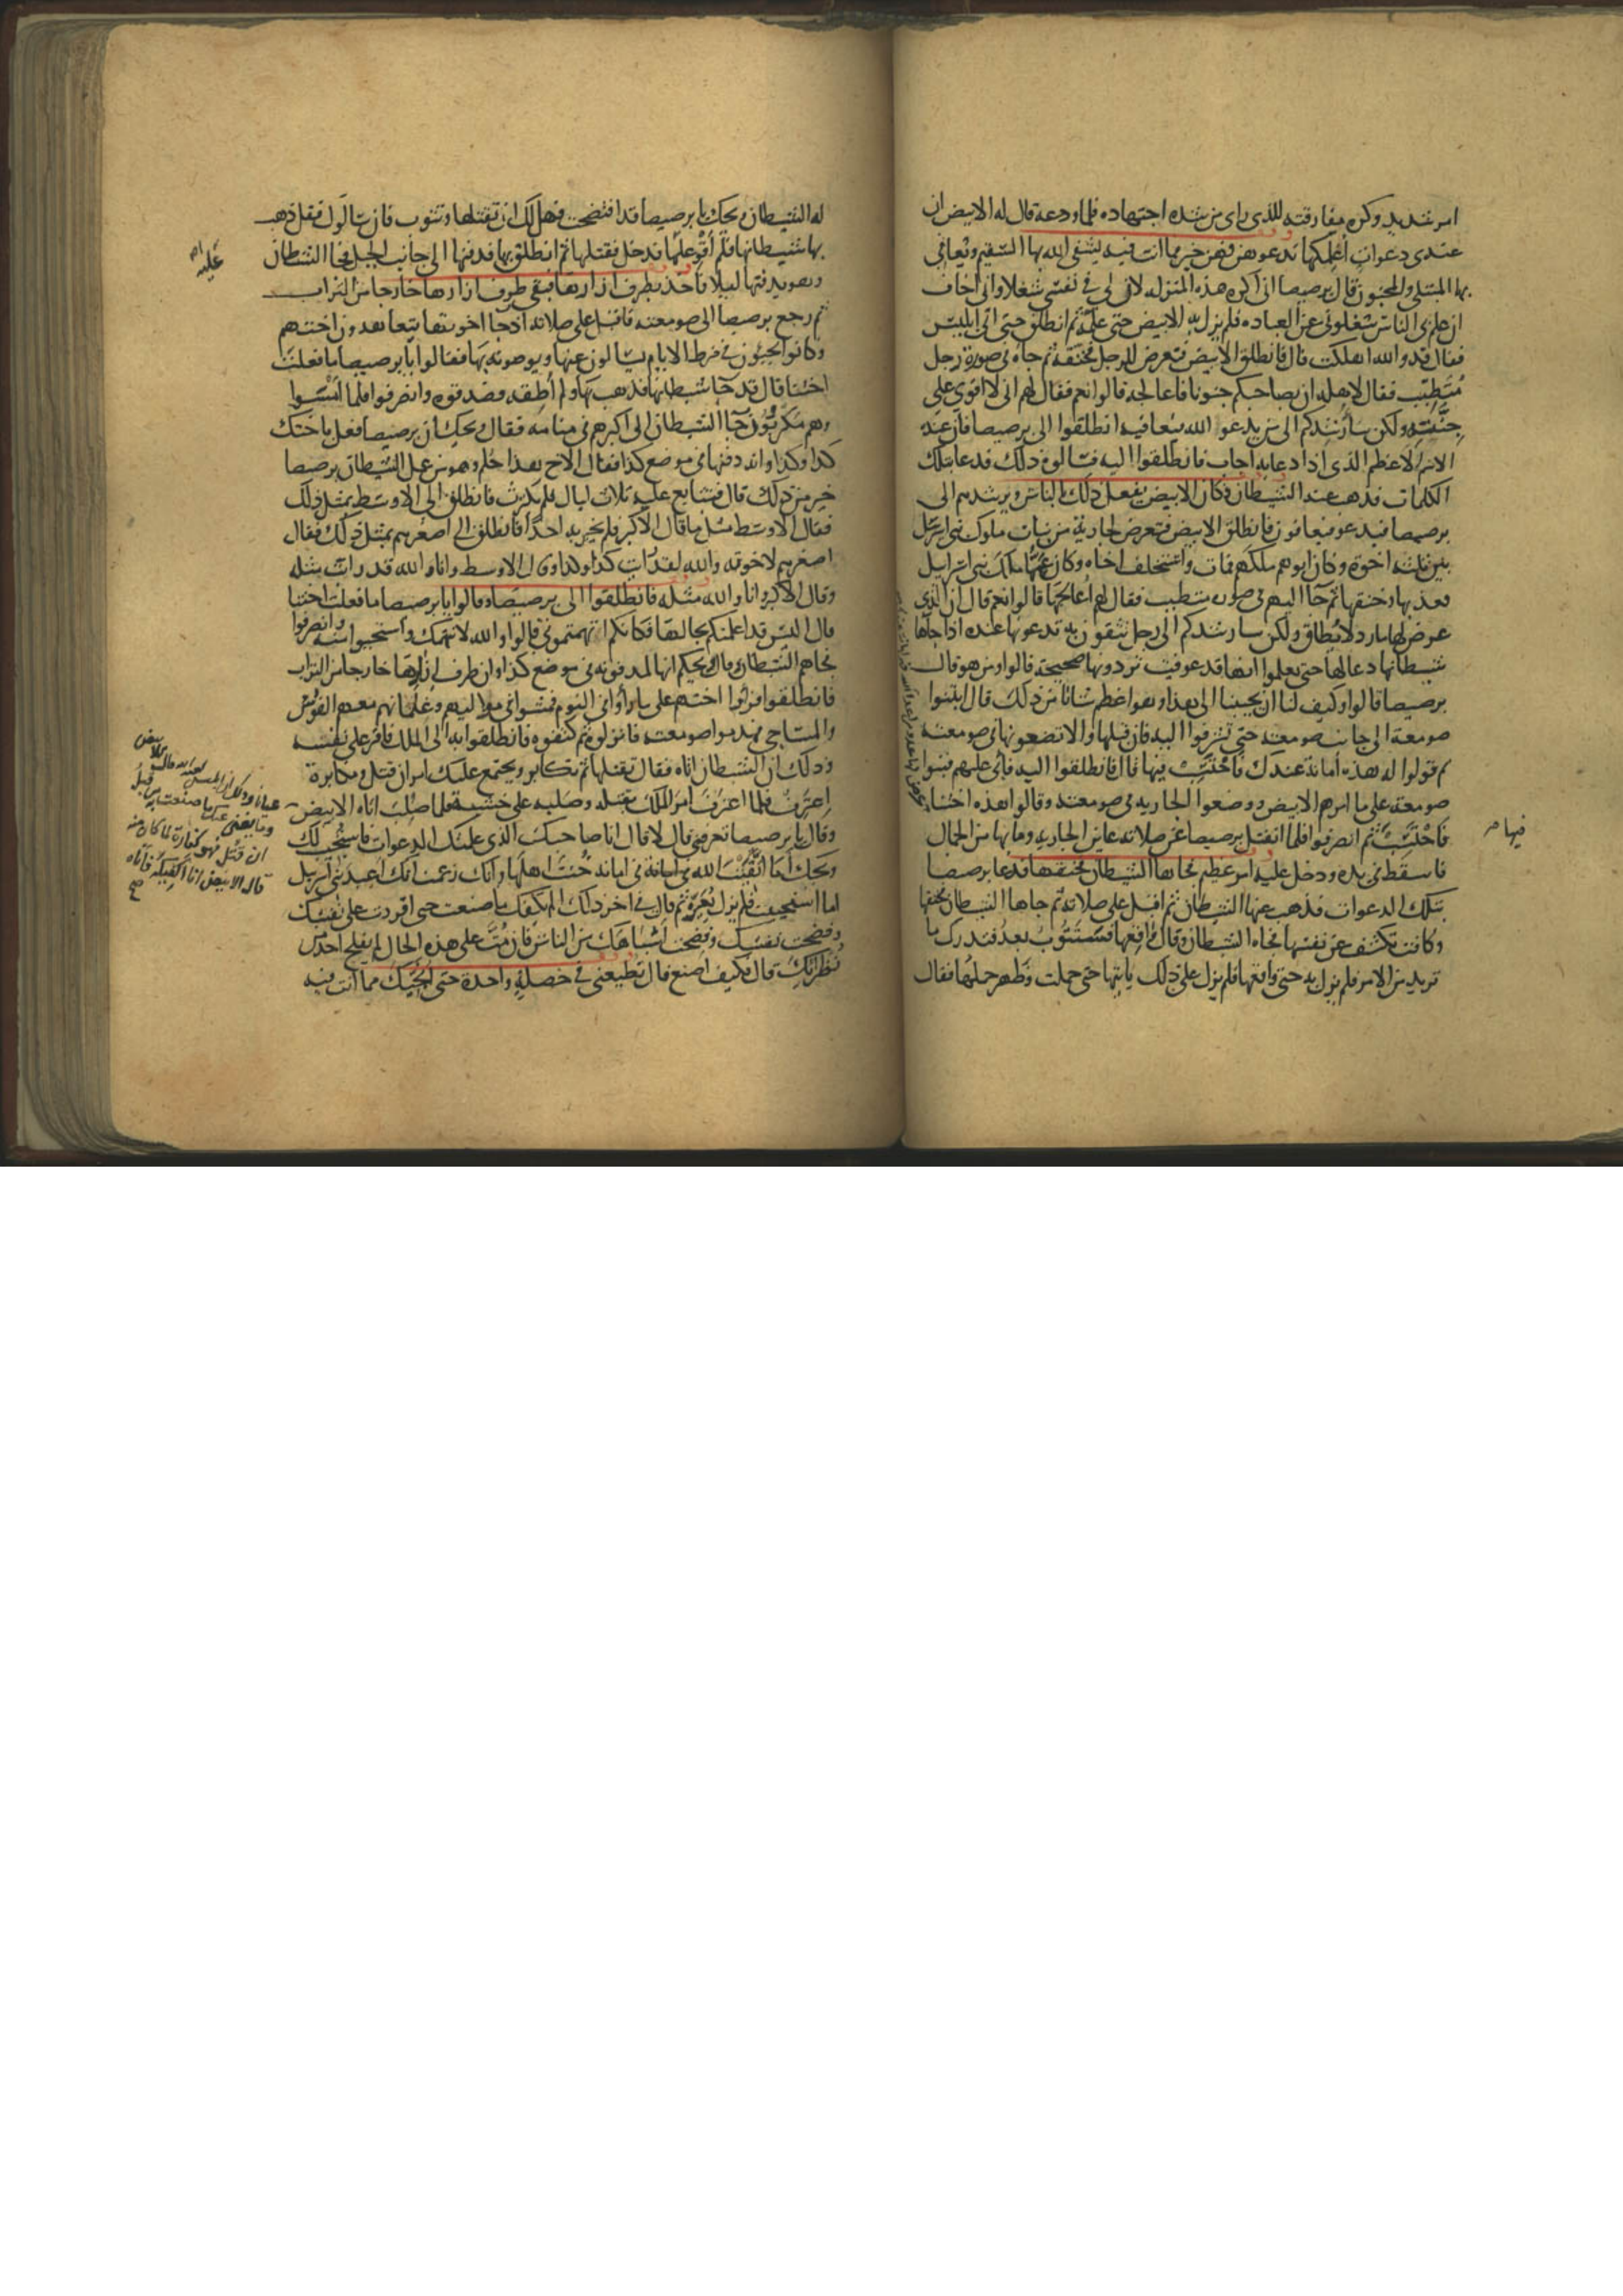 امر شديد وكره مفارقته للذى راى من شده اجتهاده فلما ودعه قال له الابيض ان
عندى دعوات أعلمكها تدعو بهن فهن خير مما انت فيه يشفى الله بها السقيم ويعافى
بها المبتلى والمجنون قال برصيصا انى اكره هذه المنزله لان لى فى نفسى شغلا وانى اخاف
ان علم بى الناس شغلونى عن العباده فلم يزل به الابيض حتى علمه ثم انطلق حتى اتى ابليس
فقال قد والله اهلكت قال فانطلق الابيض فتعرض للرجل فخنقه ثم جاه فى صورة رجل
متطبب فقال لاهله ان بصاحبكم جنونا فاعالجه قالوا نعم فقال لهم انى لا اقوى على
جنّته ولكن سأرشدكم الى من يدعو الله فيعافيه انطلقوا الى برصيصا فان عنده
الاسم الاعظم الذى اذا دعا به اجاب فانطلقوا اليه فسالوه ذلك فدعا بتلك
الكلمات فذهب عنه الشيطان وكان الابيض يفعل ذلك بالناس ويرشدهم الى
برصيصا فيدعو فيعافون فانطلق الابيض فتعرض لجارية من بنات ملوك بنى اسرئيل
بين ثلثه اخوة وكان ابوهم ملكهم فمات واستخلف اخاه وكان عمها ملك بنى اسرائيل
فعذبها وخنقها ثم جا اليهم فى صوره متطبب فقال لهم أعالجها قالوا نعم قال ان الذى
عرض لها مارد لا يطاق ولكن سارشدكم الى رجل تثقون به تدعونها عنده اذا جاها
شيطانها دعا لها حتى تعلموا انها قد عوفيت تردونها صحيحة قالوا ومن هو قال
برصيصا قالوا وكيف لنا ان يجيبنا الى هذا وهو اعظم شانا من ذلك قال ابتنوا
صومعة الى جانب صومعته حتى تشرفوا اليه فان قبلها والا تضعونها فى صومعته
ثم قولوا له هذه أمانة عندك فاحتسب فيها قال فانطلقوا اليه فأبى عليهم فبنوا
صومعة على ما امرهم الابيض ووضعوا الجاريه فى صومعته وقالوا هذه اختنا
فاحتسب ثم انصرفوا فلما انفتل برصيصا عن صلاته عاين الجاريه وما بها من الجمال
فيها صح
فاسقط فى يده ودخل عليه امر عظيم فجاها الشيطان فخنقها فدعا برصيصا
بتلك الدعوات فذهب عنها الشيطان ثم اقبل على صلاته ثم جاها الشيطان فخنقها
وكانت تكشف عن نفسها فجاه الشيطان وقال واقعها فستتوب بعد فتدرك ما
تريد من الامر فلم يزل به حتى واقعها فلم يزل على ذلك ياتيها حتى حملت وظهر حملها فقال
له الشيطان ويحك يا برصيصا قد افتضحت فهل لك ان تقتلها وتتوب فان سالوك فقل ذهب
بها شيطانها فلم أقو عليها فدخل فقتلها ثم انطلق بها فدفنها الى جانب الجبل فجا الشيطان
عليه
وهو يدفنها ليلا فاخذ بطرف ازارها فبقى طرف ازارها خارجا من التراب
ثم رجع برصيصا الى صومعته فاقبل على صلاته اذ جا اخوتها يتعاهدون اختهم
وكانوا يجيئون فى فرط الايام يسالون عنها ويوصونه بها فقالوا يا برصيصا ما فعلت
اختنا قال قد جا شيطانها فذهب بها ولم أطقه فصدقوه وانصرفوا فلما امسوا
وهم مكربون جا الشيطان الى اكبرهم فى منامه فقال ويحك ان برصيصا فعل باختك
كذا وكذا وانه دفنها فى موضع كذا فقال الاخ هذا حلم وهو من عمل الشيطان برصيصا
خير من ذلك قال فتتابع عليه ثلاث ليال فلم يكترث فانطلق الى الاوسط بمثل ذلك
فقال الاوسط مثل ما قال الاكبر فلم يخبر به احدا فانطلق الى اصغرهم بمثل ذلك فقال
اصغرهم لاخوته والله لقد رأيت كذا وكذا وقال الاوسط وانا والله قد رايت مثله
وقال الاكبر وانا والله مثله فانطلقوا الى برصيصا وقالوا يا برصيصا ما فعلت اختنا
قال اليس قد اعلمتكم بحالها فكانكم اتهمتمونى قالوا والله لا نتهمك واستحيوا منه وانصرفوا
فجاهم الشيطان وقال ويحكم انها لمدفونة فى موضع كذا وان طرف ازارها خارجا من التراب
فانطلقوا فراوا اختهم على ما راوا فى النوم فمشوا فى مواليهم وغلمانهم معهم الفؤوس
والمساحى فهدموا صومعته فانزلوه ثم كتفوه فانطلقوا به الى الملك فاقر على نفسه
وذلك ان الشيطان اتاه فقال تقتلها ثم تكابر ويجتمع عليك امران قتل ومكابرة
اعترف فلما اعترف امر الملك بقتله وصلبه على خشبة فلما صلب اتاه الابيض
وقال يا برصيصا تعرفنى قال لا قال انا صاحبك الذى علمتك الدعوات فاستجيب لك
ويحك أما اتقيت الله فى امانة فى امانه خنت اهلها وانك زعمت انك اعبد بنى اسرئيل
اما استحييت فلم يزل يعيره ثم قال فى اخر ذلك الم يكفك ما صنعت حتى اقررت على نفسك
وفضحت نفسك وفضحت اشباهك من الناس فان مت على هذه الحال لم يفلح احد من
نظرائك قال فكيف اصنع قال تطيعنى فى خصلة واحدة حتى انجيك مما انت فيه
ان قتل فهو كفارة لما كان منه
قال الابيض انا اكفيكه فأتاه
صح